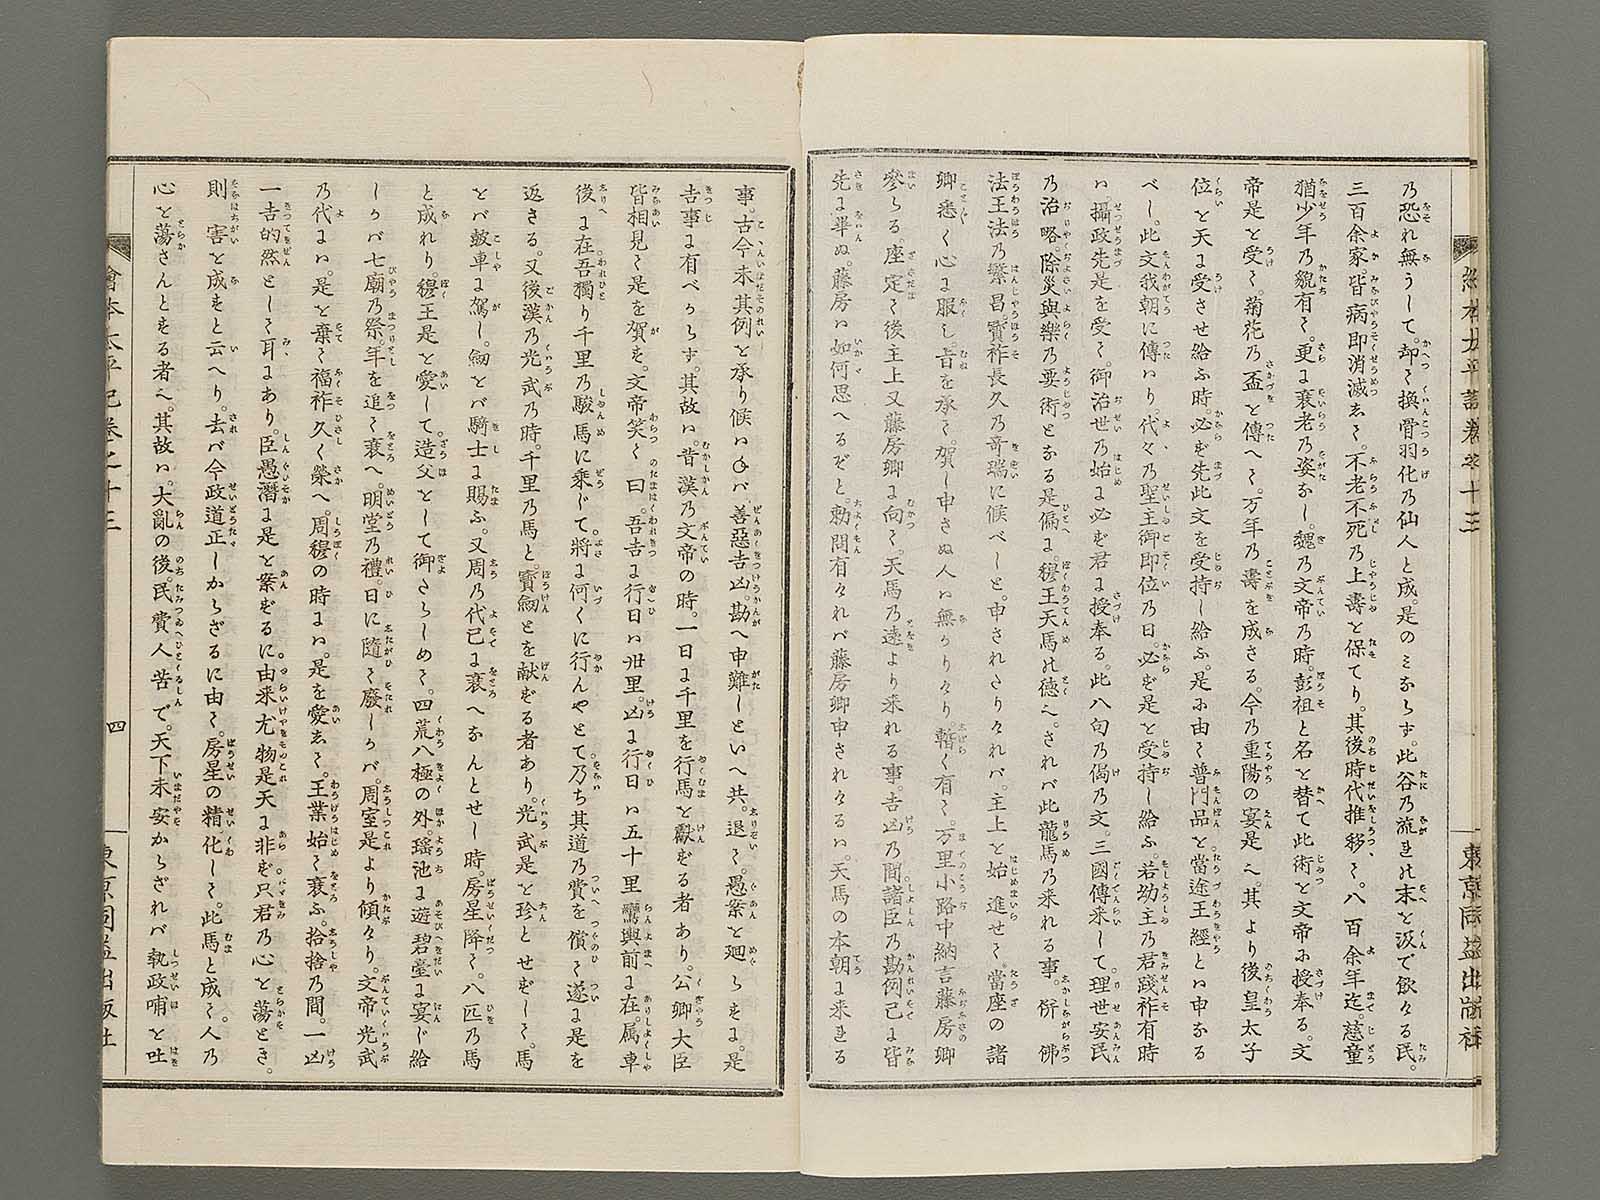 乃恐れ無うして。却て換骨羽化乃仙人と成。是のミならす。此谷乃流れ此末と汲で飲ける民。
三百余家。皆病即消滅して。不老不死乃上壽と保てり。其後時代推移て。八百余年迄。慈童
猶少年乃貌有て。更に衰老乃姿なし。魏乃文帝乃時。彭祖と名と替て此術と文帝に授奉る。文
帝是と受て。菊花乃盃と傳へて。万年乃壽を成さる。今乃重陽の宴是へ。其より後皇太子
位と天に受させ給ふ時。必ず先此文を受持し給ふ。是に由て普門品と當途王經とハ申なる
べし。此文我朝に傳ハり。代々乃聖主御即位乃日。必ず是と受持し給ふ。若幼主乃君踐祚有時
ハ攝政先是を受て。御治世乃始に必ず君に授奉る。此八句乃偈乃文。三國傳来して。理世安民
乃治略。除災與樂乃要術となる是偏に。穆王天馬此德へ。されバ此龍馬乃来れる事。併佛
法王法乃繁昌。寳祚長久乃奇瑞に候べしと。申されたりけれバ。主上と始進せて。當座の諸
卿悉く心に服し。旨を承て。賀し申さぬ人ハ無かりけり。暫く有て。万里小路中納言藤房卿
參らる。座定て後主上又藤房卿に向て。天馬乃遠より来れる事。吉凶乃間諸臣乃勘例已に皆
先に畢ぬ。藤房ハ如何思へるぞと。勅問有けれバ藤房卿申されけるハ。天馬の本朝に来れる
事。古今未其例と承り候ハねバ。善惡吉凶。勘へ申難しといへ共。退て。愚案と廻らすに。是
吉事に有べからす。其故ハ。昔漢乃文帝の時。一日に千里を行馬と獻ずる者あり。公卿大臣
皆相見て是を賀す。文帝笑て曰。吾吉に行日ハ卅里。凶に行日ハ五十里鸞輿前に在。属車
後に在吾獨り千里乃駿馬に乘じて。將に何くに行んやとて。乃ち其道乃費を償て遂に是を
返さる。又後漢乃光武乃時。千里乃馬と。寳劔とを献ずる者あり。光武是と珍とせずして。馬
とバ皷車に駕し。劔とバ騎士に賜ふ。又周乃代已に衰へなんとせし時。房星降て。八匹乃馬
と成れり。穆王是と愛して。造父として御さらしめて。四荒八極の外。瑶池に遊碧臺に宴じ給
しかバ七廟乃祭。年を追て衰へ。明堂乃禮。日に隨て廢しかバ。周室是より傾けり。文帝光武
乃代にハ。是と棄て福祚久く榮へ。周穆の時にハ。是を愛して。王業始て衰ふ。拾捨乃間。一凶
一吉的然として耳にあり。臣愚潛に是と案ずるに。由来尤物是天に非ず。只君乃心と蕩とき。
則害と成すと云へり。去バ今政道正しからざるに由て。房星の精化して。此馬と成て。人乃
心と蕩さんとする者へ。其故ハ。大亂の後。民費人苦で。天下未安からざれバ執政哺と吐
繪本太平記卷之十三
四
東京同益出版社